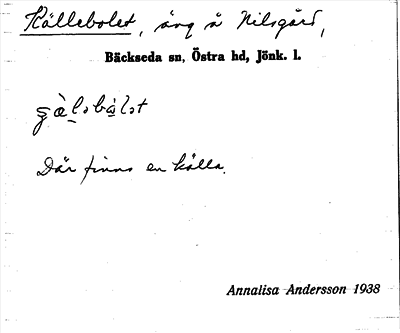 Källebolet, äng å Nilsgård,
Bäckseda sn, Östra hd, Jönk. l.
Där finns en källa.
Annalisa Andersson 1938